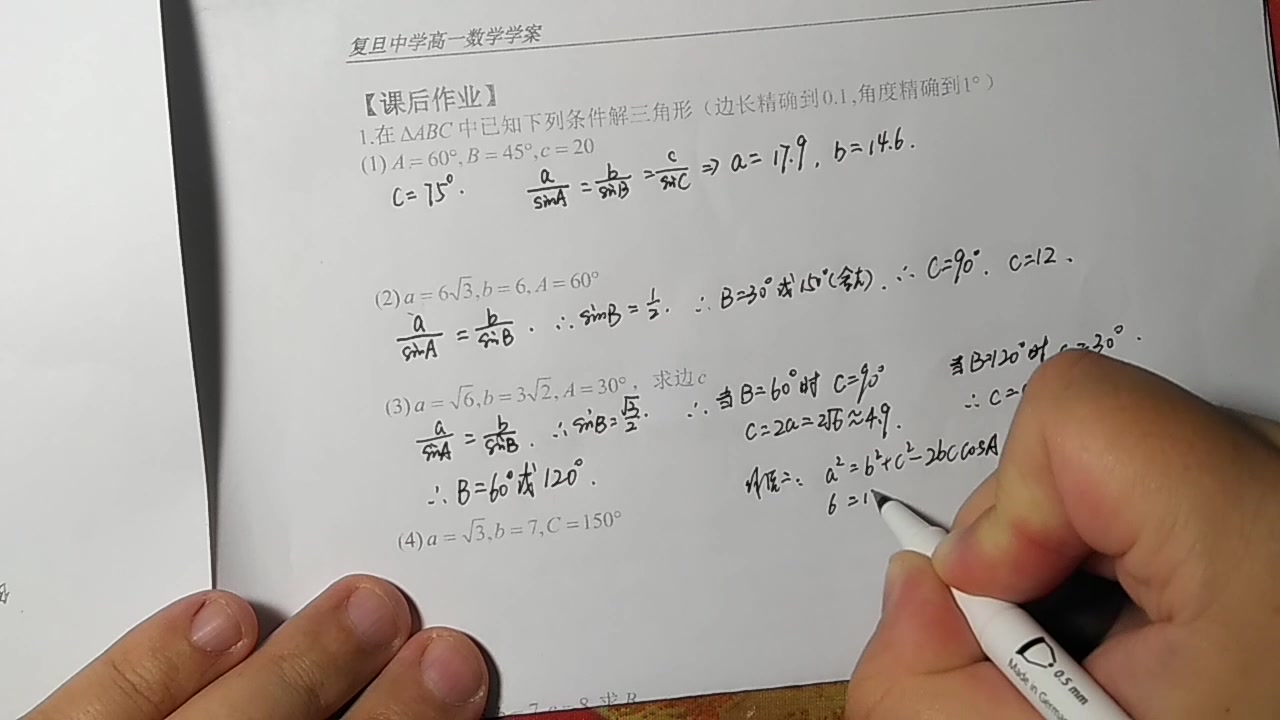 复旦中学高一数学学案
【课后作业】
1.在 ΔABC 中已知下列条件解三角形（边长精确到0.1,角度精确到1°）
(1) A = 60°, B = 45°, c = 20
C = 75°. a/sinA = b/sinB = c/sinC ⇒ a = 17.9, b = 14.6.
(2) a = 6√3, b = 6, A = 60°
a/sinA = b/sinB. ∴ sinB = 1/2. ∴ B=30°或150°(舍去). ∴ C=90°. c=12.
(3) a = √6, b = 3√2, A = 30°, 求边c
a/sinA = b/sinB. ∴ sinB = √3/2. ∴ 当B=60°时 C=90°
c=2a=2√6≈4.9.
当B=120°时 C=30°.
∴ c=
∴ B=60°或120°.
法二: a²=b²+c²-2bccosA
6 = 1
(4) a = √3, b = 7, C = 150°
= 7, c = 8, 求 B
Made in German
0.5 mm